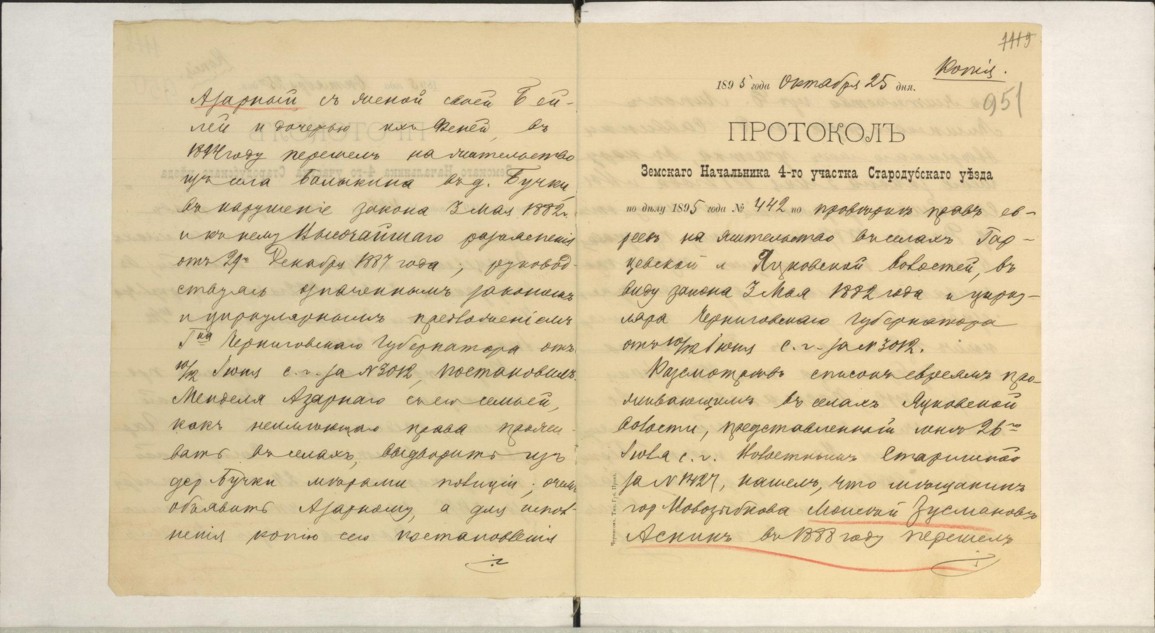 Азарный съ женой своей Бей-
лей и дочерью ихъ Феней, въ
году перешелъ на жительство
изъ села въ д. Бучки
въ нарушеніе закона 3 Мая 1882 г.
и къ нему Высочайшаго разъясненія
отъ 29 Декабря 1887 года, руковод-
ствуясь означеннымъ закономъ
и циркулярнымъ предложеніемъ
Г-на Черниговскаго Губернатора отъ
10/12 Іюня с. г. за № 3012, постановилъ:
Менделя Азарнаго съ его семьей,
какъ неимѣющаго права прожи-
вать въ селахъ, выдворить изъ
дер. Бучки мѣрами полиціи; о чемъ
объявить Азарному, а для испол-
ненія копію сего постановленія
1119
Копія.
1895 года Октября 25 дня.
951
ПРОТОКОЛЪ
Земскаго Начальника 4-го участка Стародубскаго уѣзда
по дѣлу 1895 года № 442 по провѣркѣ правъ ев-
реевъ на жительство въ селахъ Гар-
цевской и Яцковской волостей, въ
виду закона 3 Мая 1882 года и цирку-
ляра Черниговскаго Губернатора
отъ 10/12 Іюня с. г. за № 3012.
Разсмотрѣвъ списокъ евреямъ про-
живающимъ въ селахъ Яцковской
волости, представленный мнѣ 26-го
с. г. Волостнымъ Старшиной
за № 1427, нашелъ, что мѣщанинъ
гор. Новозыбкова Зусмановъ
Аснинъ въ 1888 году перешелъ